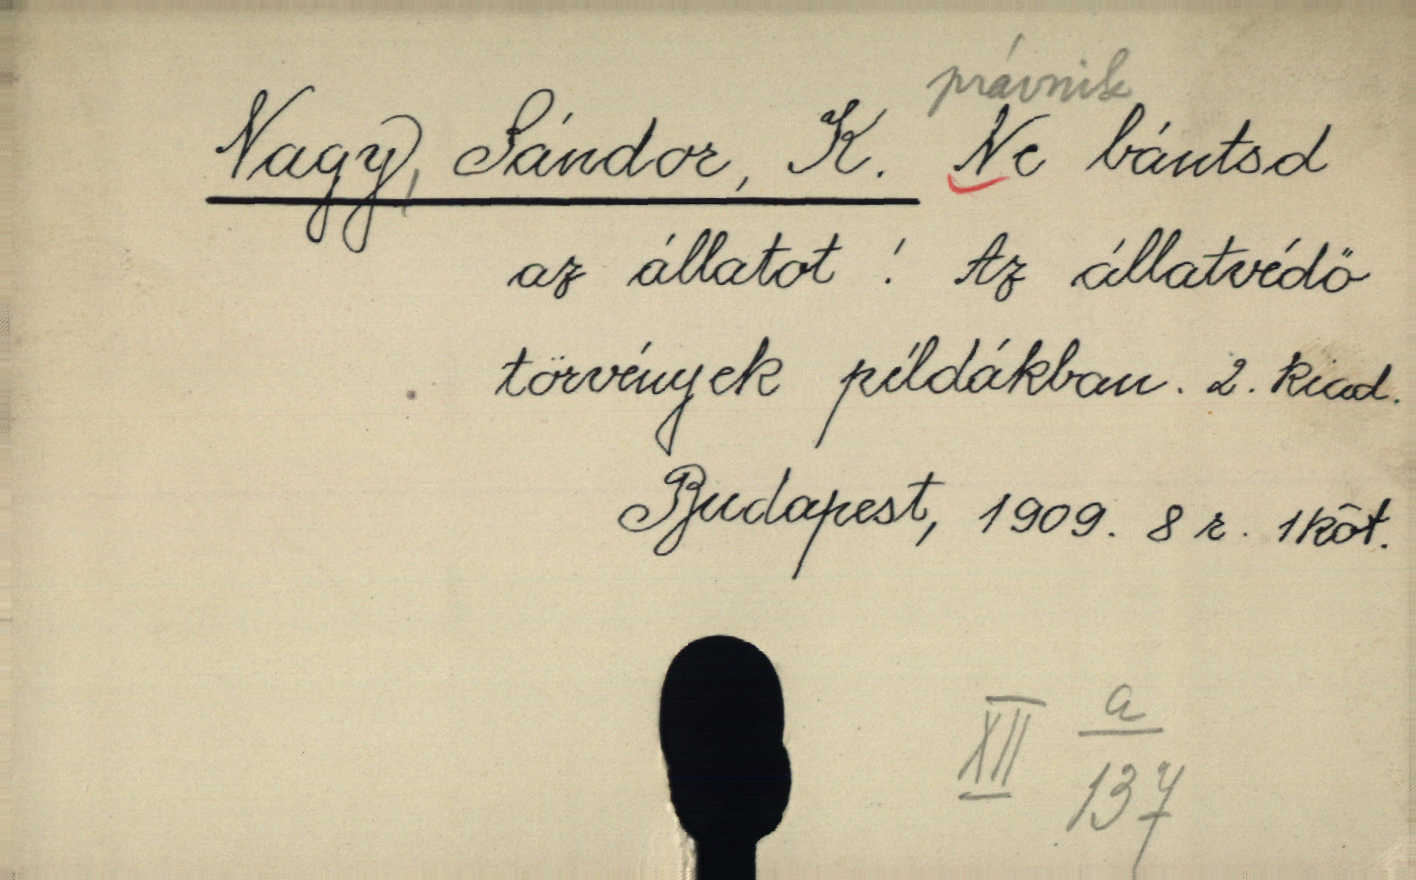 právnik
Nagy, Sándor, K. Ne bántsd
az állatot! Az állatvédő
törvények példákban. 2. kiad.
Budapest, 1909. 8 r. 1 köt.
XII a
137